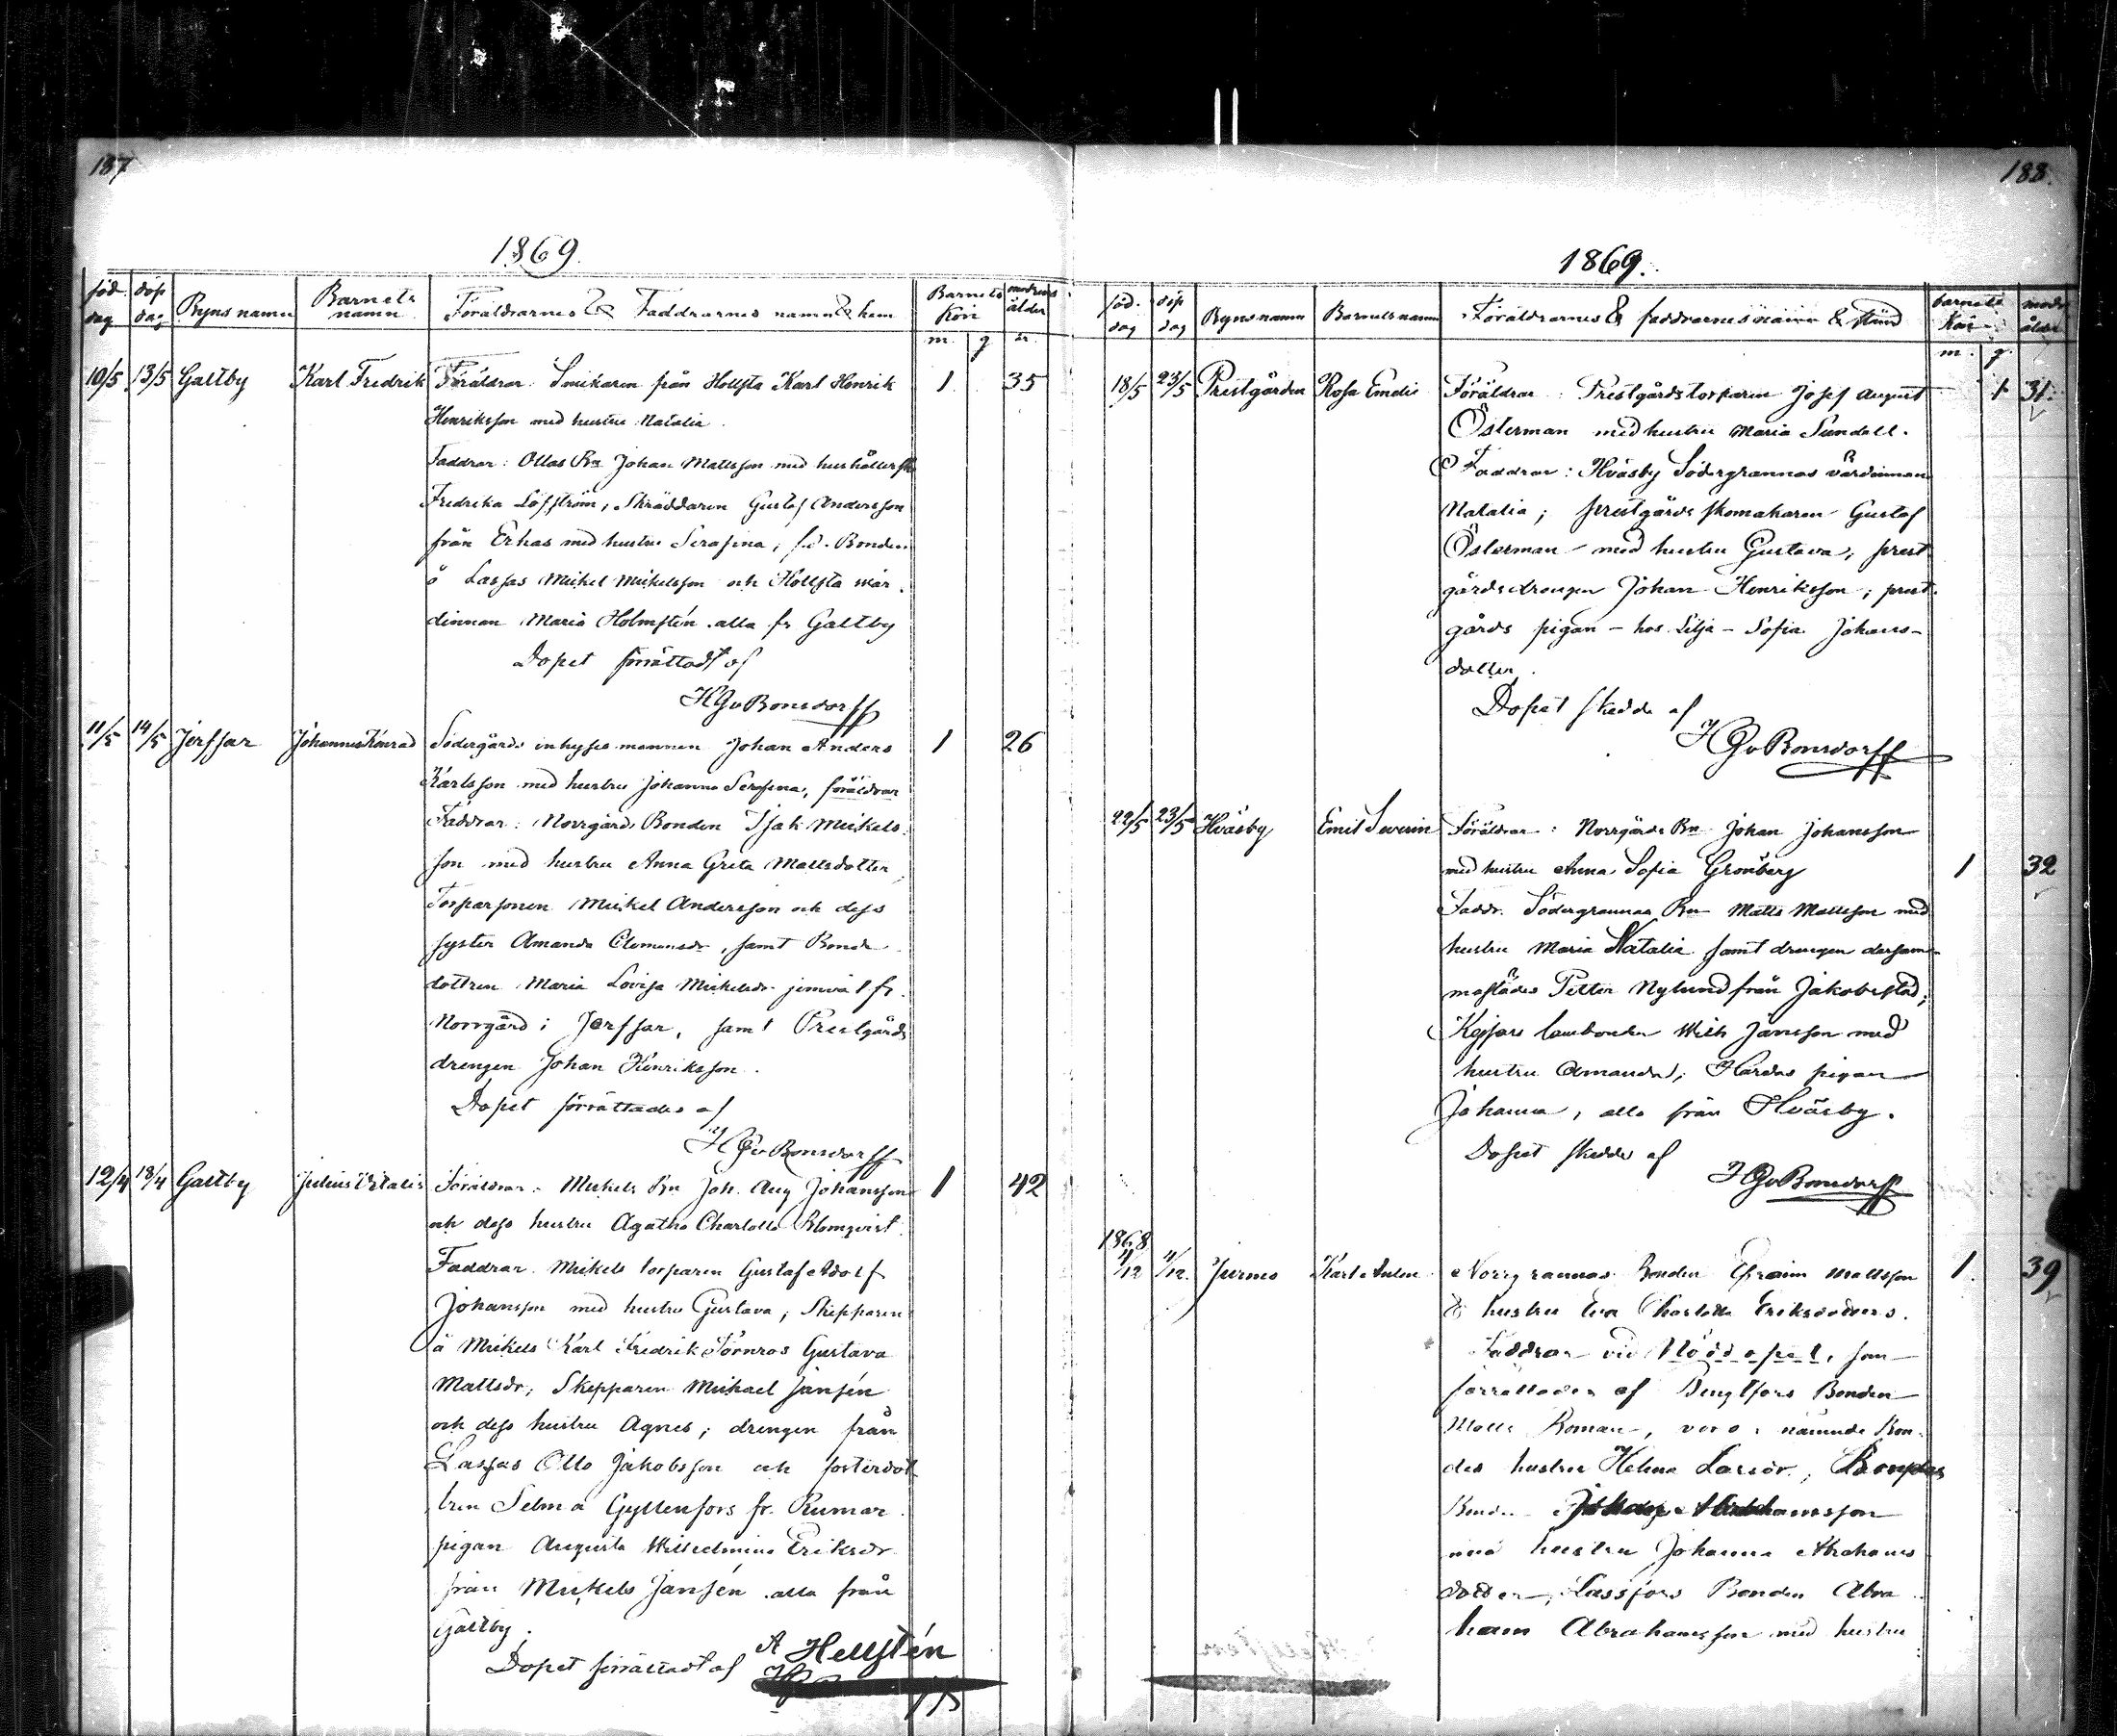 187
1869.
föd. dag
dop dag
Byns namn
Barnets namn
Föräldrarnes & Faddrarnes namn & hem
Barnets Kön
modrens ålder
m. g. år.
10/5 13/5 Galtby Karl Fredrik Föräldrar: Snikaren från Hollsta Karl Henrik 1 35
Henriksson med hustru Natalia.
Faddrar: Ollas Bn Johan Mattsson med hushållerskan
Fredrika Löfström, Skräddaren Gustaf Andersson
från Erkas med hustru Serafina, Bonden
å Lassas Mickel Mickelsson och Hollsta vär-
dinnan Maria Holmstén alla fr Galtby
Dopet förrättadt af
HGvBonsdorff
11/5 14/5 Jerssar Johannes Konrad Södergårds inhysesmannen Johan Anders 1 26
Karlsson med hustru Johanna Serafina, föräldrar
Faddrar: Norrgårds Bonden Isak Mickels-
son med hustru Anna Greta Mattsdotter
Torparsonen Mickel Andersson och dess
syster Amanda Clemensdr, samt Bonde
dottren Maria Lovisa Mickelsdr jemväl fr.
Norrgård i Jerssar, samt Prestgårds
drengen Johan Henriksson.
Dopet förrättades af
HGvBonsdorff
12/4 18/4 Galtby Julius Vitalis Föräldrar: Mickels Bn Joh. Aug Johansson 1 42
och dess hustru Agatha Charlotta Blomqvist.
Faddrar. Mickels torparen Gustaf Adolf
Johansson med hustru Gustava; Skepparen
å Mickels Karl Fredrik Törnros Gustava
Mattsdr; Skepparen Michael Jansén
och dess hustru Agnes; drengen från
Lassas Otto Jakobsson och fosterdot
tren Selma Gyllenfors fr. Rumar
pigan Augusta Wilhelmina Eriksdr
från Mickels Jansén alla från
Galtby.
Dopet förrättadt af A Hellstén
188.
1869.
föd. dag
döp dag
Byns namn
Barnets namn
Föräldrarnes & faddrarnes namn & stånd
barnets Kön
modr ålder
m. g.
18/5 23/5 Prestgården Rosa Emelie Föräldrar: Prestgårdstorparen Josef August 1 31.
Österman med hustru Maria Sundell.
Faddrar: Hväsby Södergrannas värdinnan
Natalia; prestgårds skomakaren Gustaf
Österman med hustru Gustava; prest
gårdsdrengen Johan Henriksson; prest-
gårds pigan – hos Lilja – Sofia Johans-
dotter.
Dopet skedde af
HGvBonsdorff
22/5 23/5 Hväsby Emil Severin Föräldrar: Norrgårds Bn Johan Johansson
med hustru Anna Sofia Grönberg 1 32
Faddr. Södergrannas Bn Matts Mattsson med
hustru Maria Natalia samt drengen dersam-
mastädes Petter Nylund från Jakobstad;
Jansson med
hustru Amanda; Hardas pigan
Johanna, alla från Hväsby.
Dopet skedde af
HGvBonsdorff
1868
4/12 4/12. Jurmo Karl Anton Norrgrannas Bonden Efraim Mattsson 1. 39
& hustru Eva Charlotta Eriksdotters.
Faddrar vid Nöddopet, som
förrättades af Bengtssors Bonden
Matts Roman, voro: nämnde Bon-
des hustru Helena Larsdr;
Bonden
med hustru Johanna Abrahams
dotter, Lassfors Bonden Abra
ham Abrahamsson med hustru